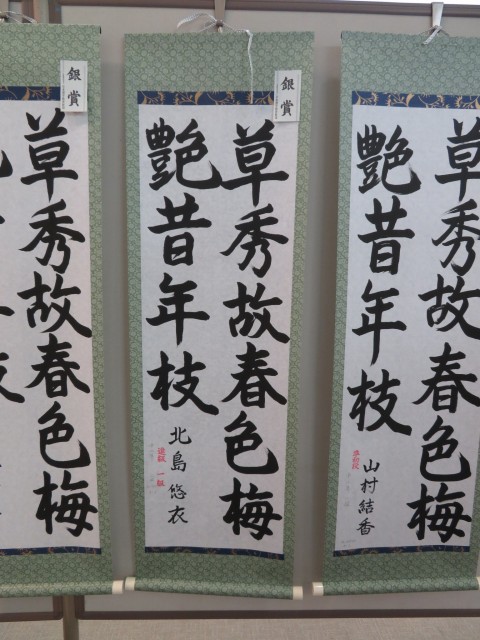 草秀故春色梅
艶昔年枝
山村結香
銀賞
草秀故春色梅
艶昔年枝
北島悠衣
銀賞
草秀故春色梅